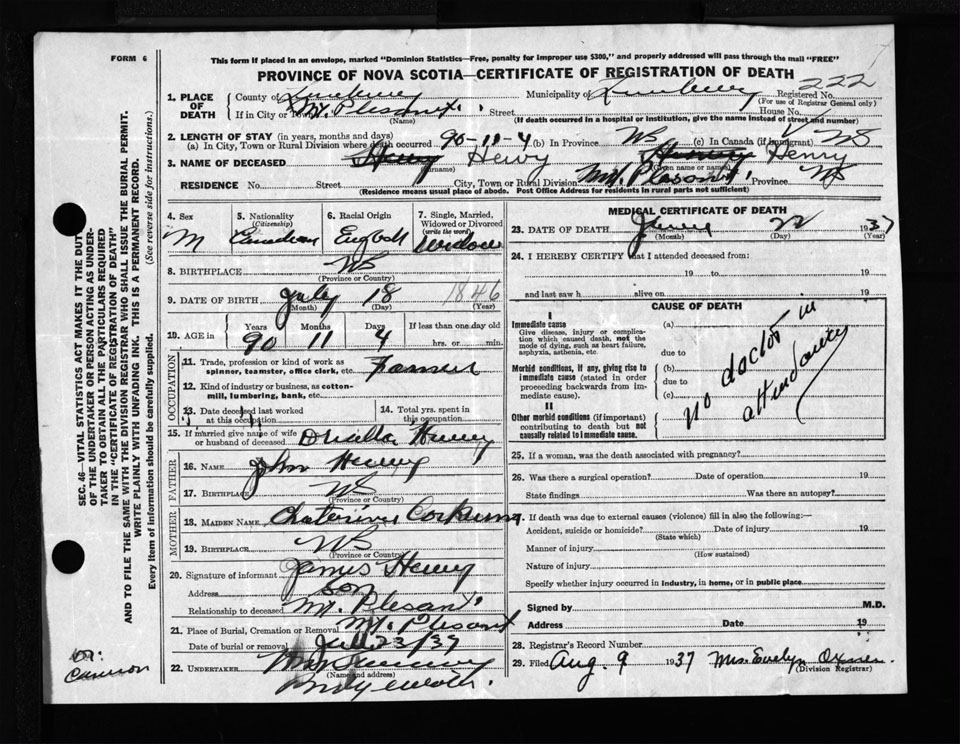 FORM 6
This form if placed in an envelope, marked "Dominion Statistics—Free, penalty for improper use $300," and properly addressed will pass through the mail "FREE"
PROVINCE OF NOVA SCOTIA—CERTIFICATE OF REGISTRATION OF DEATH
222
1. PLACE OF DEATH
County of
Municipality of
Registered No.
(For use of Registrar General only)
If in City or Town Mt. Plesant Street House No.
(Name) (If death occurred in a hospital or institution, give the name instead of street and number)
2. LENGTH OF STAY (in years, months and days)
(a) In City, Town or Rural Division where death occurred 90-11-4 (b) In Province NS (c) In Canada (if immigrant) NS
3. NAME OF DECEASED Henry
(Surname) (Given name or names)
RESIDENCE No. Street City, Town or Rural Division Mt. Plesant Province NS
(Residence means usual place of abode. Post Office Address for residents in rural parts not sufficient)
4. Sex M
5. Nationality (Citizenship) Canadian
6. Racial Origin English
7. Single, Married, Widowed or Divorced (write the word) Widow
8. BIRTHPLACE NS
(Province or Country)
9. DATE OF BIRTH July 18 1846
(Month) (Day) (Year)
10. AGE in Years Months Days If less than one day old
90 11 4 hrs. or min.
OCCUPATION
11. Trade, profession or kind of work as spinner, teamster, office clerk, etc. Farmer
12. Kind of industry or business, as cotton-mill, lumbering, bank, etc.
13. Date deceased last worked at this occupation
14. Total yrs. spent in this occupation
15. If married give name of wife or husband of deceased
FATHER
16. NAME John
17. BIRTHPLACE NS
(Province or Country)
MOTHER
18. MAIDEN NAME
19. BIRTHPLACE NS
(Province or Country)
20. Signature of informant James
Address son
Relationship to deceased Mt. Plesant
21. Place of Burial, Cremation or Removal Mt. Plesant
Date of burial or removal 23/37
22. UNDERTAKER
(Name and address)
MEDICAL CERTIFICATE OF DEATH
23. DATE OF DEATH 22 1937
(Month) (Day) (Year)
24. I HEREBY CERTIFY that I attended deceased from:
19 to 19
and last saw h alive on 19
CAUSE OF DEATH
I
Immediate cause
Give disease, injury or complication which caused death, not the mode of dying, such as heart failure, asphyxia, asthenia, etc.
(a)
due to
Morbid conditions, if any, giving rise to immediate cause (stated in order proceeding backwards from immediate cause)
(b)
due to
(c)
II
Other morbid conditions (if important) contributing to death but not causally related to immediate cause.
no doctor in
attendance
25. If a woman, was the death associated with pregnancy?
26. Was there a surgical operation? Date of operation 19
State findings Was there an autopsy?
27. If death was due to external causes (violence) fill in also the following:—
Accident, suicide or homicide? Date of injury 19
(State which)
Manner of injury
(How sustained)
Nature of injury
Specify whether injury occurred in industry, in home, or in public place
Signed by M.D.
Address Date 19
28. Registrar's Record Number
29. Filed Aug. 9 1937 Mrs. Evelyn
(Division Registrar)
SEC. 46—VITAL STATISTICS ACT MAKES IT THE DUTY
OF THE UNDERTAKER OR PERSON ACTING AS UNDER-
TAKER TO OBTAIN ALL THE PARTICULARS REQUIRED
IN THE "CERTIFICATE OF REGISTRATION OF DEATH"
AND TO FILE THE SAME WITH THE DIVISION REGISTRAR WHO SHALL ISSUE THE BURIAL PERMIT.
WRITE PLAINLY WITH UNFADING INK. THIS IS A PERMANENT RECORD.
Every item of information should be carefully supplied. (See reverse side for instructions.)